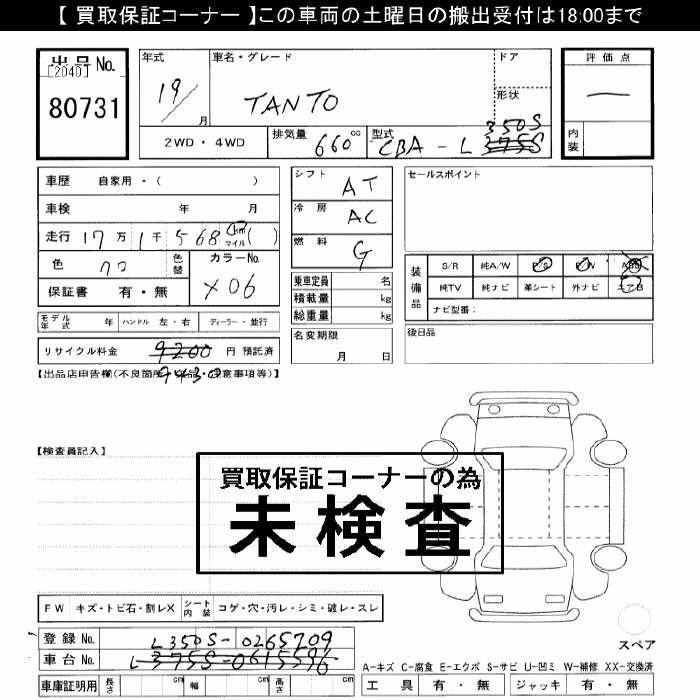 【 買取保証コーナー 】この車両の土曜日の搬出受付は18:00まで
出品No.
[2040]
80731
年式
19/
月
車名・グレード
TANTO
ドア
形状
2WD ・ 4WD
排気量
660 cc
型式
350S
CBA - L 375S
評価点
―
内装
車歴 自家用・( )
車検 年 月
走行 17万1千568 km マイル ( )
色 クロ
色替
カラーNo.
X06
保証書 有・無
シフト AT
冷房 AC
燃料 G
乗車定員 名
積載量 kg
総重量 kg
セールスポイント
装備品
S/R 純A/W P/S P/W ABS
純TV 純ナビ 革シート 外ナビ エアB
ナビ型番:
モデル年式 年 ハンドル 左・右 ディーラー・並行
名変期限
月 日
後日品
リサイクル料金 9200 円 預託済
9430
【出品店申告欄(不良箇所・欠品・注意事項等)】
【検査員記入】
買取保証コーナーの為
未検査
FW キズ・トビ石・割レX
シート内装 コゲ・穴・汚レ・シミ・破レ・スレ
登録 No. L350S-0265709
車台 No. L-375S-0615596
車庫証明用 長さ cm 幅 cm 高さ cm
スペア
A-キズ C-腐食 E-エクボ S-サビ U-凹ミ W-補修 XX-交換済
工具 有・無 ジャッキ 有・無